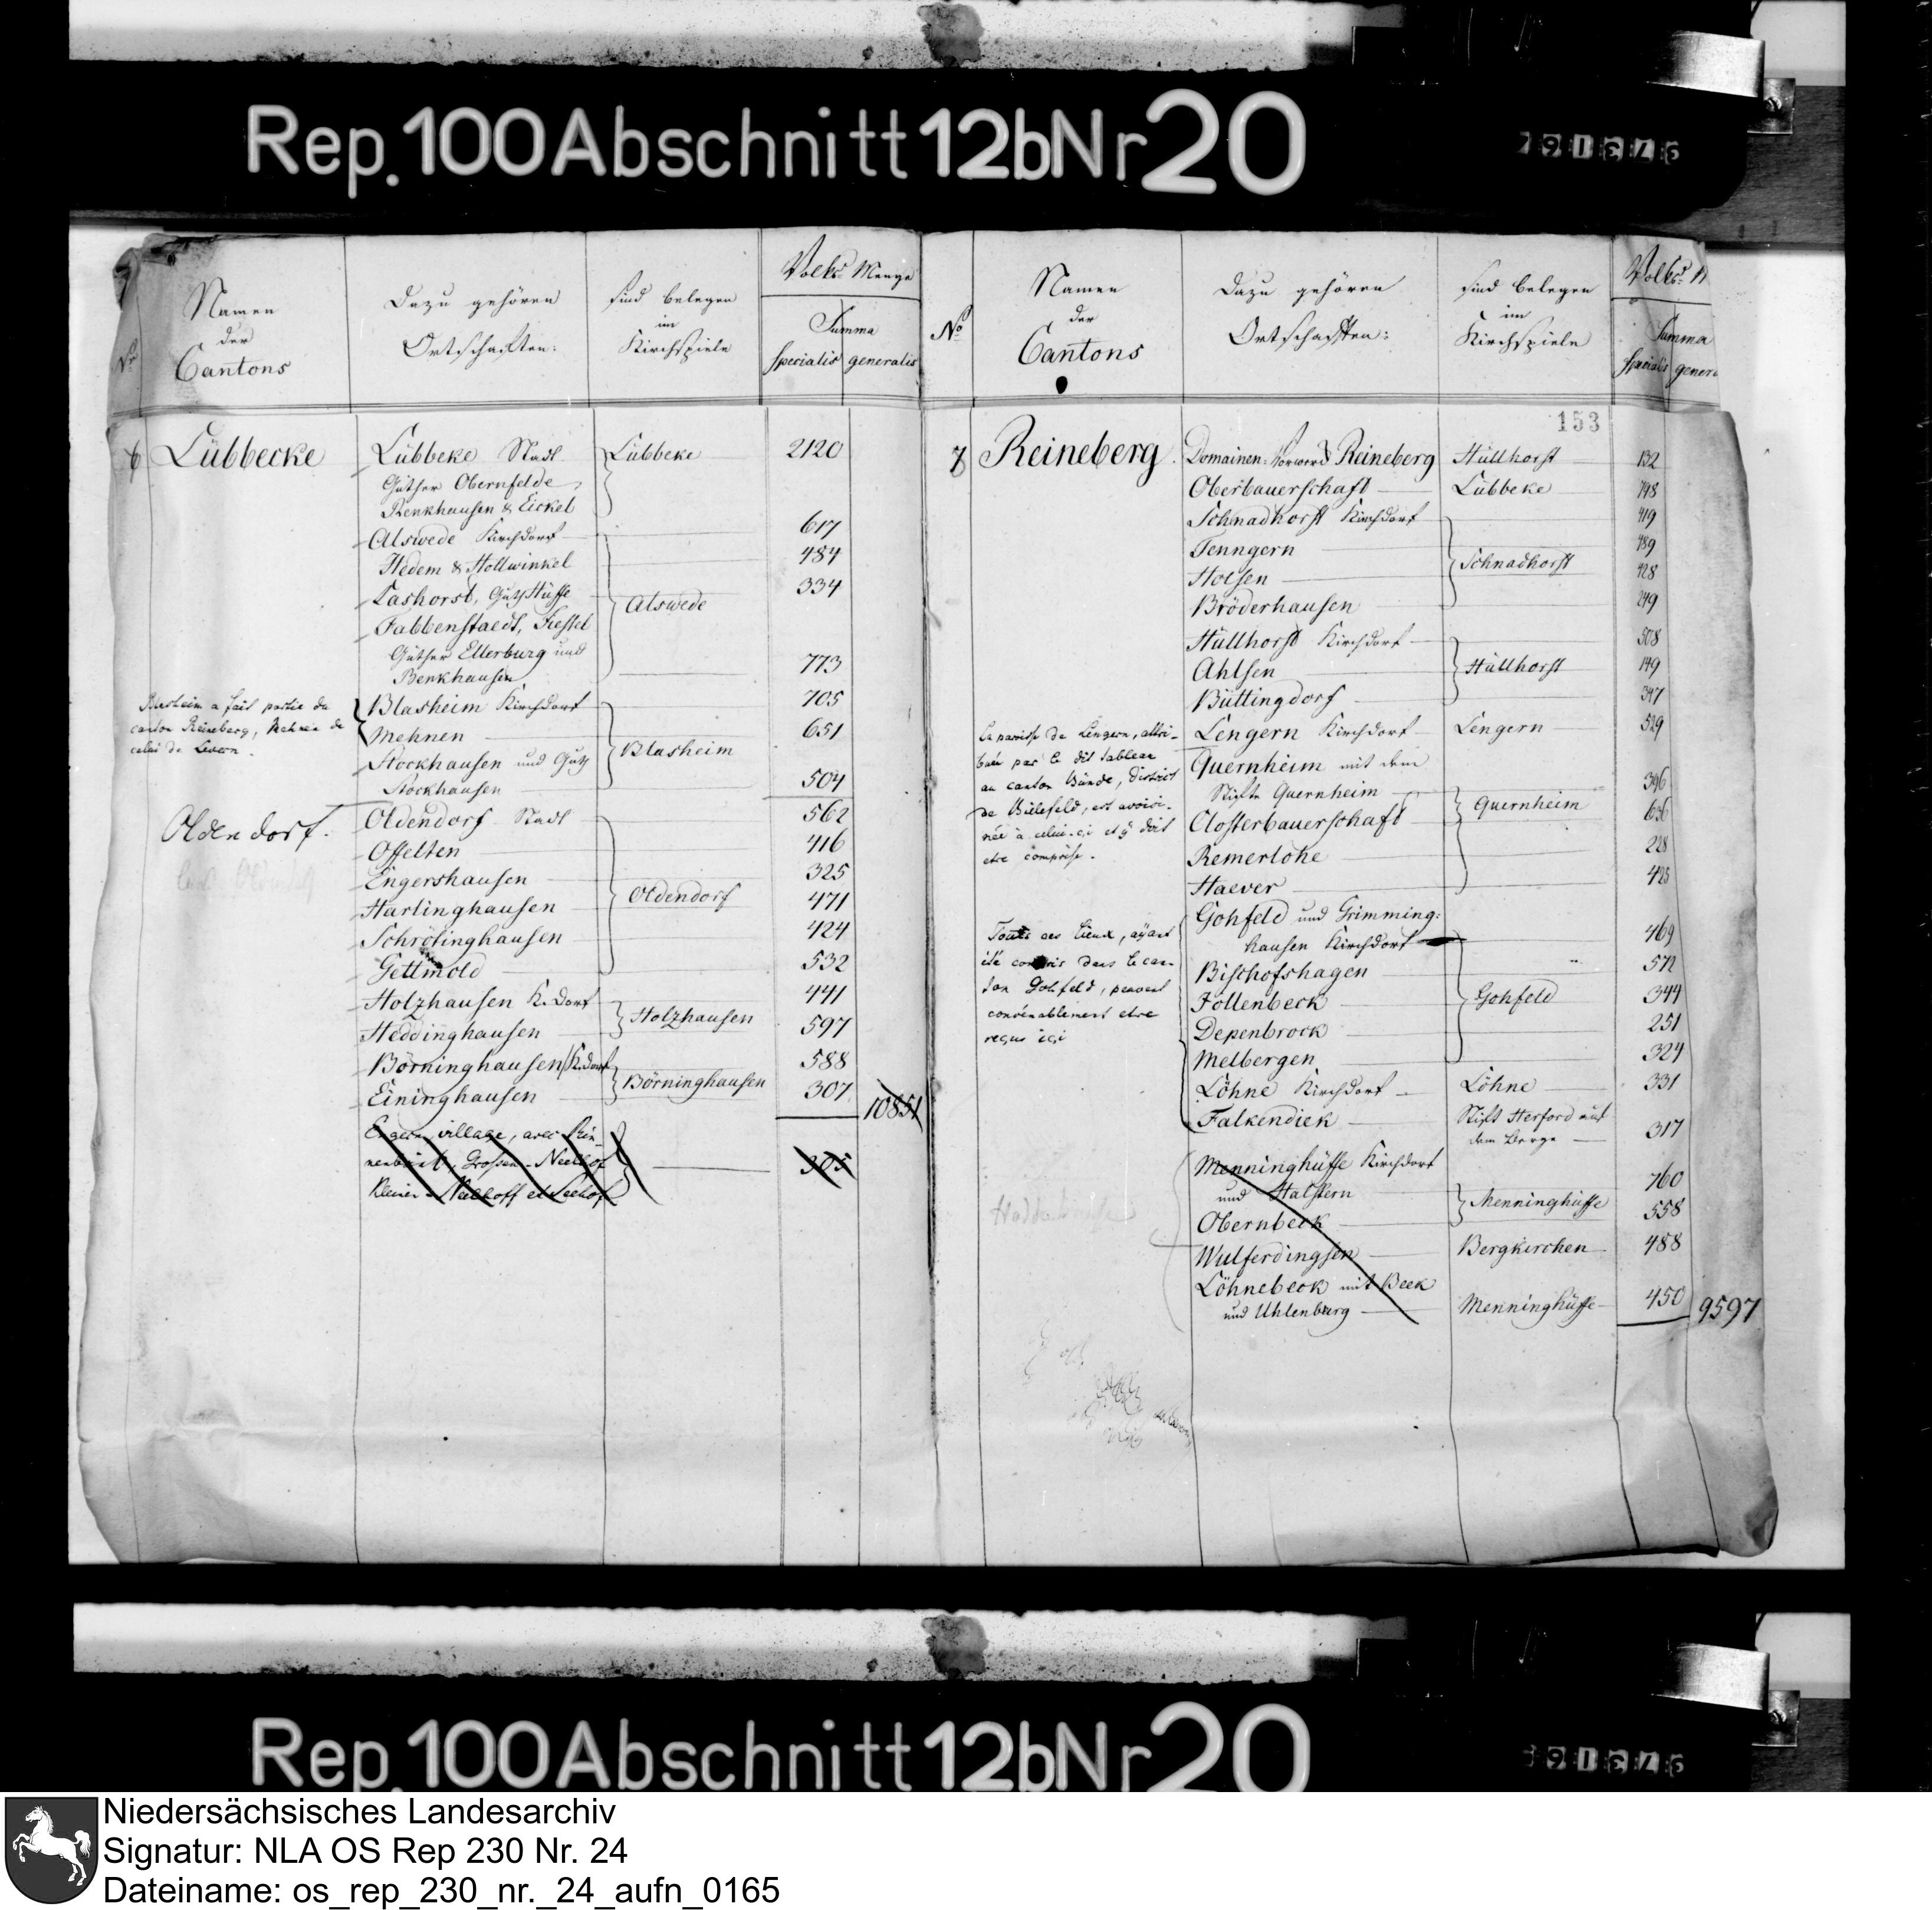 Rep.100Abschnitt12bNr20
Nr.
Namen
der
Cantons
Dazu gehören
Ortschaften:
sind belegen
im
Kirchspiele
Volks Menge
Summa
specialis generalis
6 Lübbecke
Lübbeke Stadt Lübbeke 2120
Güther Obernfelde,
Renkhausen & Eickel
Alswede Kirchdorf 617
Hedem & Hollwinkel 484
Lashorst, Guth Hüffe 334
Alswede
Fabbenstaedt, Fiestel
Güther Ellerburg und
Benkhausen 773
Blasheim a fait partie du
canton Reineberg, Mehnen de
celui de Levern.
Blasheim Kirchdorf 705
Mehnen 651
Blasheim
Stockhausen und Guth
Stockhausen 504
Oldendorf.
Oldendorf Stadt 562
Offelten 416
Engershausen 325
Oldendorf
Harlinghausen 471
Schrötinghausen 424
Gettmold 532
Holzhausen K.Dorf 441
Holzhausen
Heddinghausen 597
Börninghausen K.dorf 588
Börninghausen
Eininghausen 307
10851
Engern village, avec
Grossen-Neelhof
Kleinen Neelhoff et Seehof
305
No
Namen
der
Cantons
Dazu gehören
Ortschaften:
sind belegen
im
Kirchspiele
Volks M
Summa
specialis gener
153
7 Reineberg
Domainen-Vorwerk Reineberg Hüllhorst 132
Oberbauerschaft Lübbeke 798
Schnadhorst Kirchdorf 419
Tenngern 489
Schnadhorst
Holsen 428
Bröderhausen 249
Hüllhorst Kirchdorf 508
Ahlsen Hüllhorst 149
Büttingdorf 347
La paroisse de Lengern, attri-
buée par le dit tableau
au canton Bünde, District
de Bielefeld, est avoisi-
née à celui-ci et y doit
etre comprise.
Lengern Kirchdorf Lengern 529
Quernheim mit dem
Stifte Quernheim 396
Quernheim
Closterbauerschaft 636
Remerlohe 228
Haever 425
Toutes ces lieux, ayant
été compris dans le can-
ton Gohfeld, peuvent
convenablement etre
reçus ici
Gohfeld und Grimming-
hausen Kirchdorf 469
Bischofshagen 572
Gohfeld
Föllenbeck 344
Depenbrock 251
Melbergen 324
Löhne Kirchdorf Löhne 331
Falkendiek Stift Herford auf
dem Berge 317
Menninghüffe Kirchdorf
und Halstern 760
Menninghüffe
Obernbeck 558
Wulferdingsen Bergkirchen 488
Löhnebeck mit Beek
und Uhlenburg Menninghüffe 450 9597
Rep.100Abschnitt12bNr20
Niedersächsisches Landesarchiv
Signatur: NLA OS Rep 230 Nr. 24
Dateiname: os_rep_230_nr._24_aufn_0165